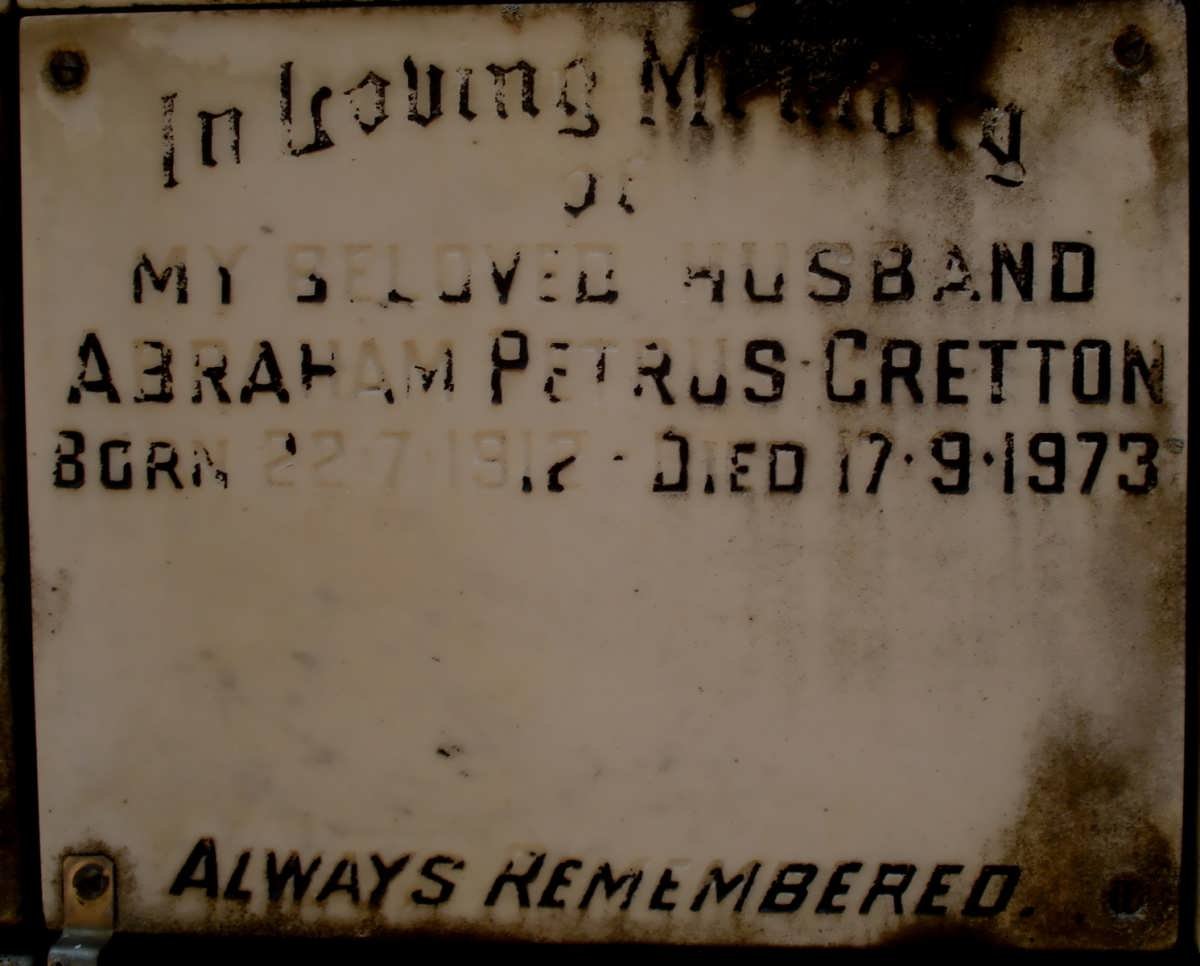 In Loving Memory
of
MY BELOVED HUSBAND
ABRAHAM PETRUS CRETTON
BORN 22·7·1912 · DIED 17·9·1973
ALWAYS REMEMBERED.